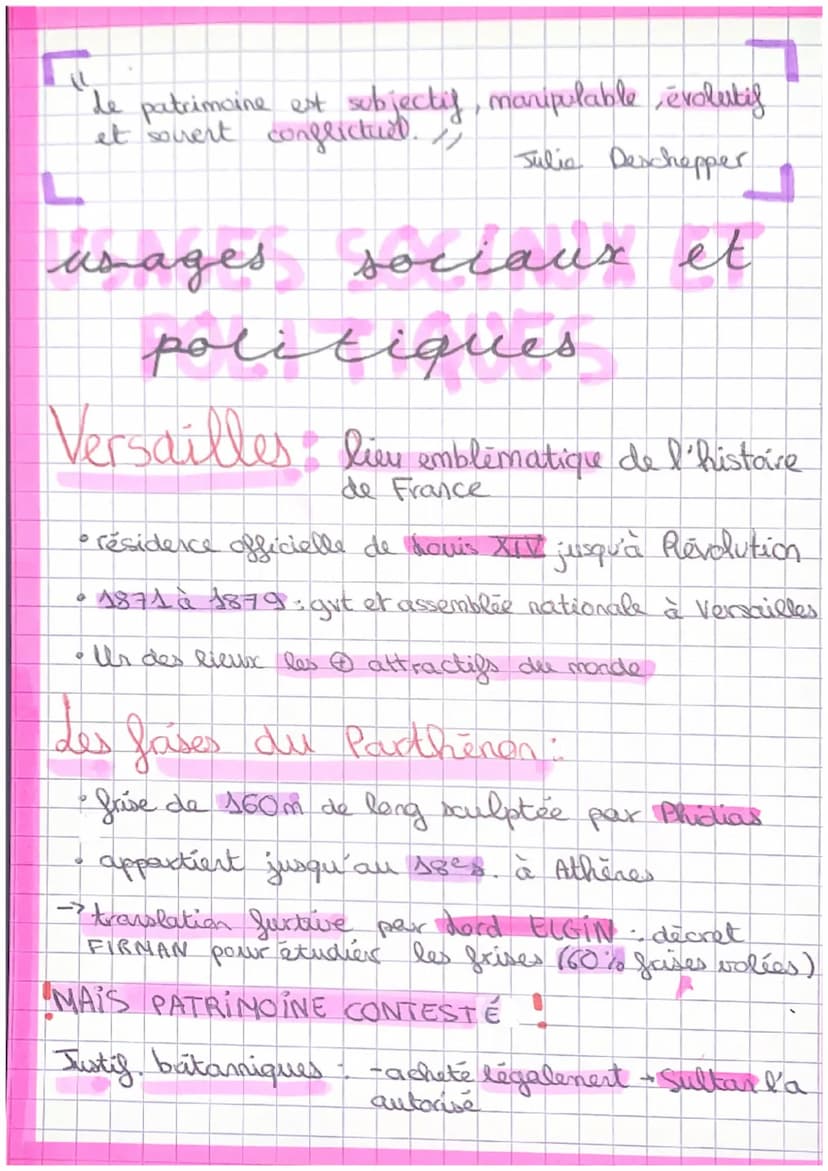 "Le patrimoine est subjectif, manipulable, évolutif
et souvent conflictuel."
Julie Deschepper
USAGES SOCIAUX ET
usages sociaux et
POLITIQUES
politiques
Versailles : lieu emblématique de l'histoire
de France
• résidence officielle de Louis XIV jusqu'à Révolution
• 1871 à 1879 : gvt et assemblée nationale à Versailles
• Un des lieux les ⊕ attractifs du monde
Les frises du Parthénon :
• frise de 160m de long sculptée par Phidias
• appartient jusqu'au 18e s. à Athènes
→ translation furtive par Lord ELGIN : décret
FIRMAN pour étudier les frises (60% frises volées)
! MAIS PATRIMOINE CONTESTÉ !
Justif. britanniques : - acheté légalement → Sultan l'a
autorisé